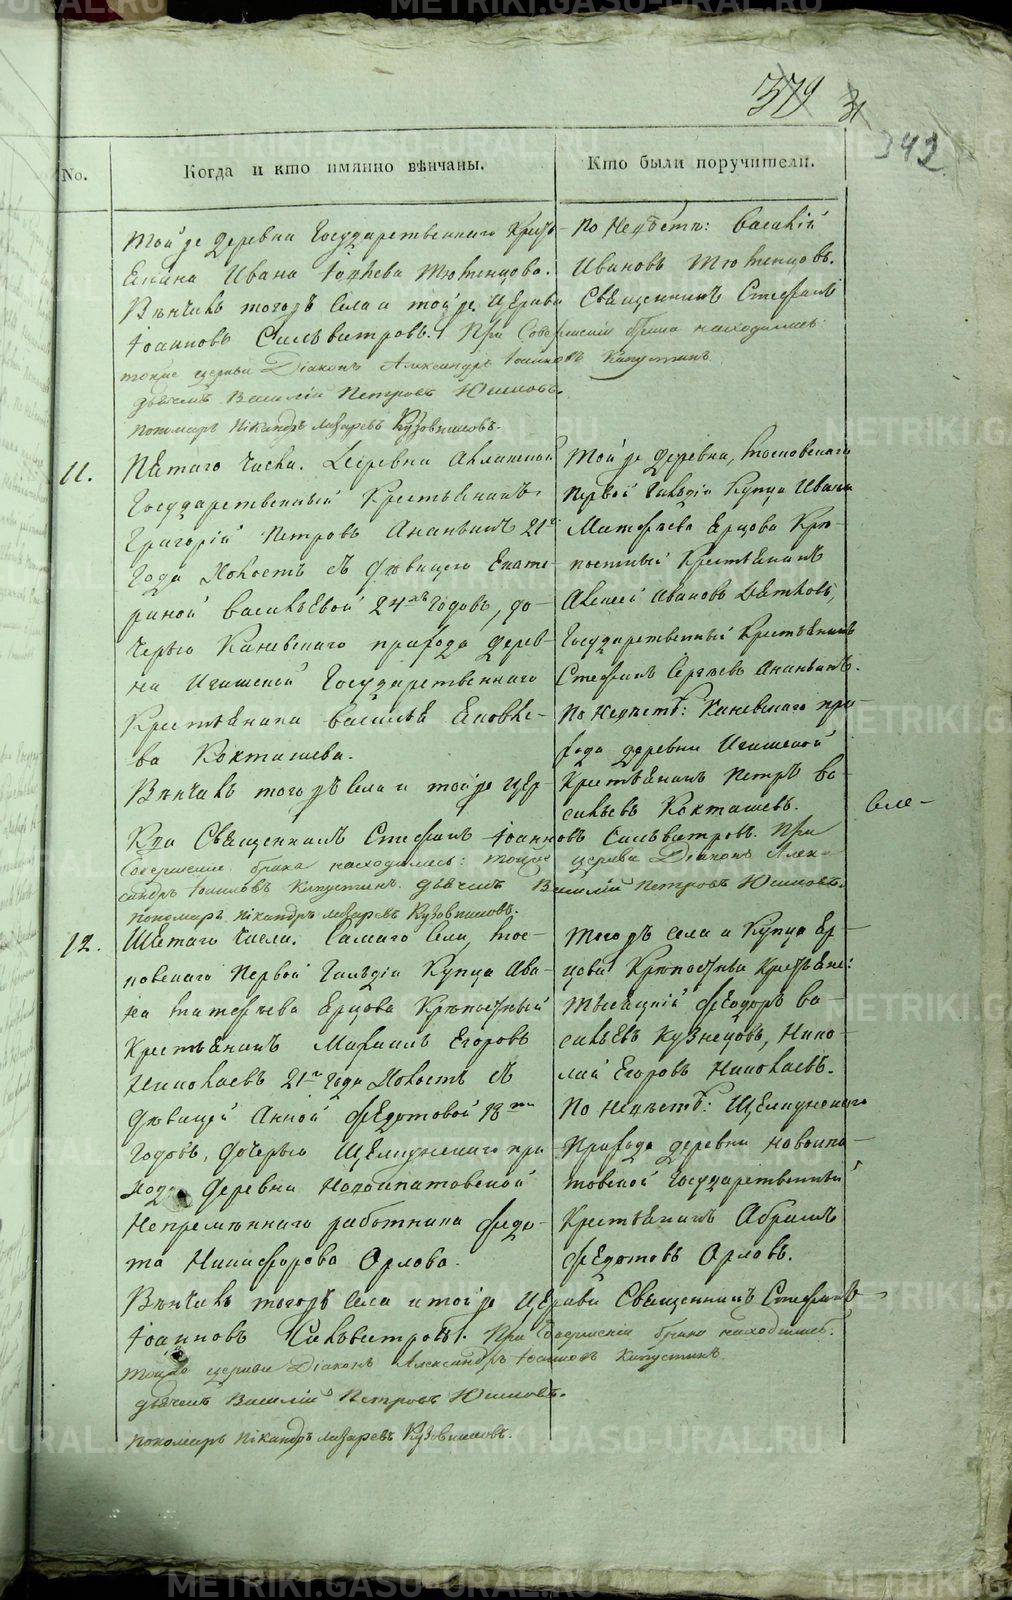 379 31
342
No.
Когда и кто имянно вѣнчаны.
Кто были поручители.
той же деревни Государственнаго Кресть-
янина Ивана Тютенцова.
Вѣнчалъ тогожъ села и той же церкви Священникъ Стефанъ
Іоанновъ Сильвестровъ. При Совершеніи брака находились:
тояже церкви Діаконъ Александръ Іоанновъ Капустинъ
дьячекъ Василій Петровъ Юшковъ.
пономарь Никандръ Лазаревъ Кузовниковъ.
По Невѣстѣ: Василій
Ивановъ Тютенцовъ.
11.
Пятаго числа. Деревни
Государственный Крестьянинъ
Григорій Петровъ Ананьинъ 21го
года Холостъ съ дѣвицею Екате-
риной Васильевой 24хъ годовъ, до-
черью Каневскаго прихода дерев-
ни Игишевой Государственнаго
Крестьянина Василья Яковле-
ва Кокташева.
Вѣнчалъ тогожъ села и той же цер-
кви Священникъ Стефанъ Іоанновъ Сильвестровъ. При
Совершеніи брака находились: тойже церкви Діаконъ Алек-
сандръ Іоанновъ Капустинъ. дьячекъ Василій Петровъ Юшковъ.
пономарь Никандръ Лазаревъ Кузовниковъ.
Той же деревни, Московскаго
первой Гильдіи Купца Ивана
Матфѣева Ярцова Крѣ-
постный Крестьянинъ
Алексей Ивановъ Дьячковъ,
Государственный Крестьянинъ
Стефанъ Сергѣевъ Ананьинъ.
По Невѣстѣ: Каневскаго при-
хода деревни Игишевой
Крестьянинъ Петръ Ва-
сильевъ Кокташевъ.
12.
Шестаго числа. Самаго Села, Мос-
ковскаго Первой Гильдіи Купца Ива-
на Матфѣева Ярцова Крѣпостный
Крестьянинъ Михаилъ Егоровъ
Николаевъ 21го года Холостъ съ
дѣвицей Анной Федотовой 18ти
годовъ, дочерью Щелкунскаго при-
хода деревни Новоипатовской
Непремѣннаго работника Федо-
та Никифорова Орлова.
Вѣнчалъ тогожъ села и тойже Церкви Священникъ Стефанъ
Іоанновъ Сильвестровъ. При Совершеніи брака находились:
тояже церкви Діаконъ Александръ Іоанновъ Капустинъ
дьячекъ Василій Петровъ Юшковъ.
пономарь Никандръ Лазаревъ Кузовниковъ.
Тогожъ села и Купца Яр-
цова Крѣпостные Крестьяне:
Тысяцкій Феодоръ Ва-
сильевъ Кузнецовъ, Нико-
лай Егоровъ Николаевъ.
По Невѣстѣ: Щелкунскаго
Прихода деревни Новоипа-
товской Государственный
Крестьянинъ Абрамъ
Федотовъ Орловъ.
METRIKI.GASO-URAL.RU